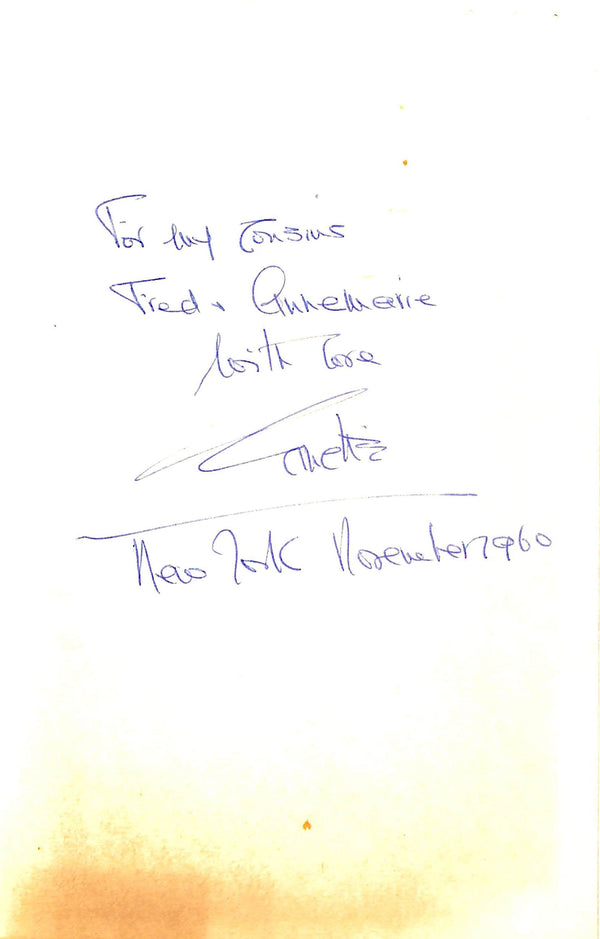 For my cousins
Fred + Annemarie
With love
New York November 1960